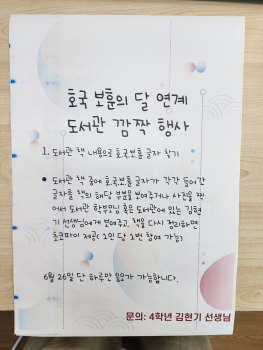 호국 보훈의 달 연계
도서관 깜짝 행사
1. 도서관 책 내용으로 호국보훈 글자 찾기
● 도서관 책 중에 호국보훈 글자가 각각 들어간
글자를 책의 해당 부분을 보여주거나 사진을 찍
어서 도서관 학부모님 혹은 도서관에 있는 김현
기 선생님에게 보여주고, 책을 다시 정리하면
초코파이 제공( 1인 당 1번 참여 가능)
6월 26일 단 하루만 응모가 가능합니다.
문의: 4학년 김현기 선생님